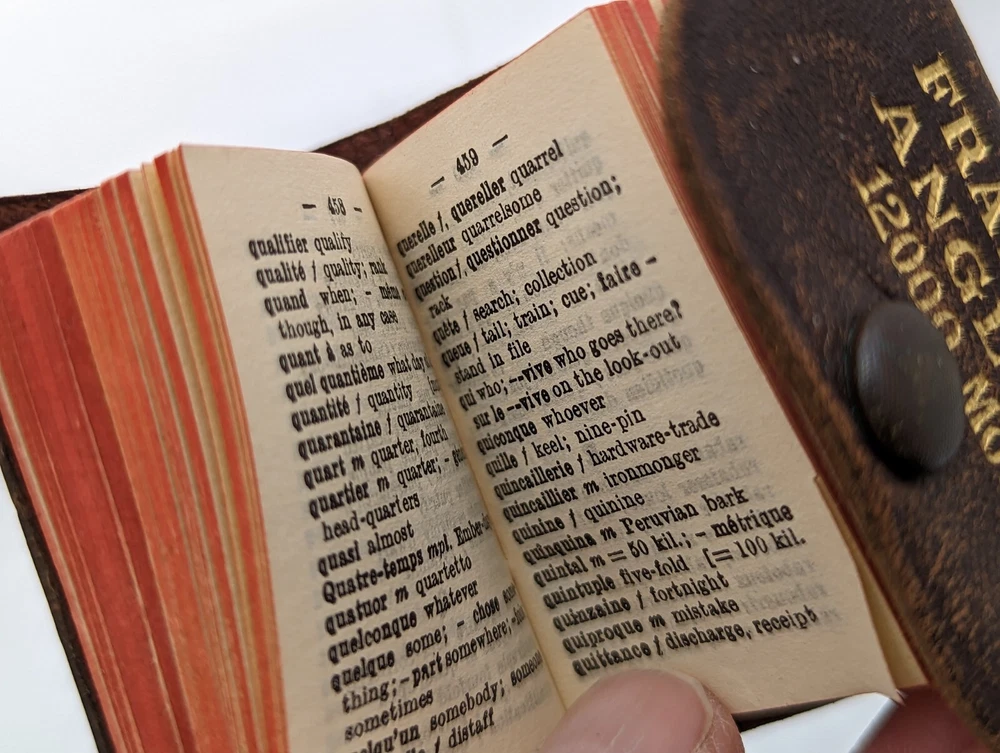 — 458 —
qualifier qualify
qualité f quality; rank
quand when; - même
though, in any case
quant à as to
quel quantième what day
quantité f quantity
quarantaine f quarantaine
quart m quarter, fourth
quartier m quarter; -
head-quarters
quasi almost
Quatre-temps mpl. Ember-
quatuor m quartetto
quelconque whatever
quelque some; - chose
thing; - part somewhere;
sometimes
quelqu'un somebody;
f distaff
— 459 —
querelle f, quereller quarrel
querelleur quarrelsome
question f, questionner question;
rack
quête f search; collection
queue f tail; train; cue; faire –
stand in file
qui who; --vive who goes there?
sur le --vive on the look-out
quiconque whoever
quille f keel; nine-pin
quincaillerie f hardware-trade
quincaillier m ironmonger
quinine f quinine
quinquina m Peruvian bark
quintal m = 50 kil.; - métrique
quintuple five-fold [= 100 kil.
quinzaine f fortnight
quiproque m mistake
quittance f discharge, receipt
FRA
ANGL
12000 MO